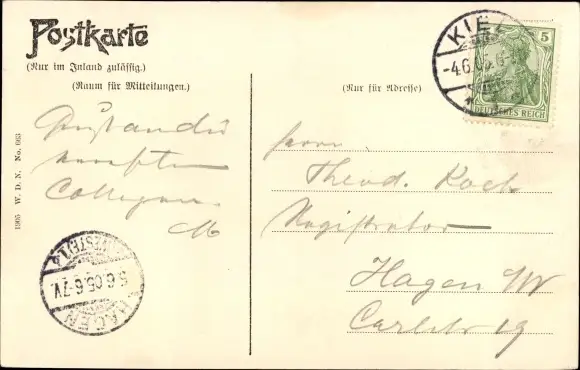 Postkarte
(Nur im Inland zulässig.)
(Raum für Mitteilungen.)
(Nur für Adresse)
KIEL
-4.6.05.
5
DEUTSCHES REICH
1905 W. D. N. No. 663
Gruß an die
Collegen
M
Herrn
Theod. Koch
Registrator
Hagen i/W
Carlstr 19
BESTELLT
5.6.05.6-7V.
HAGEN